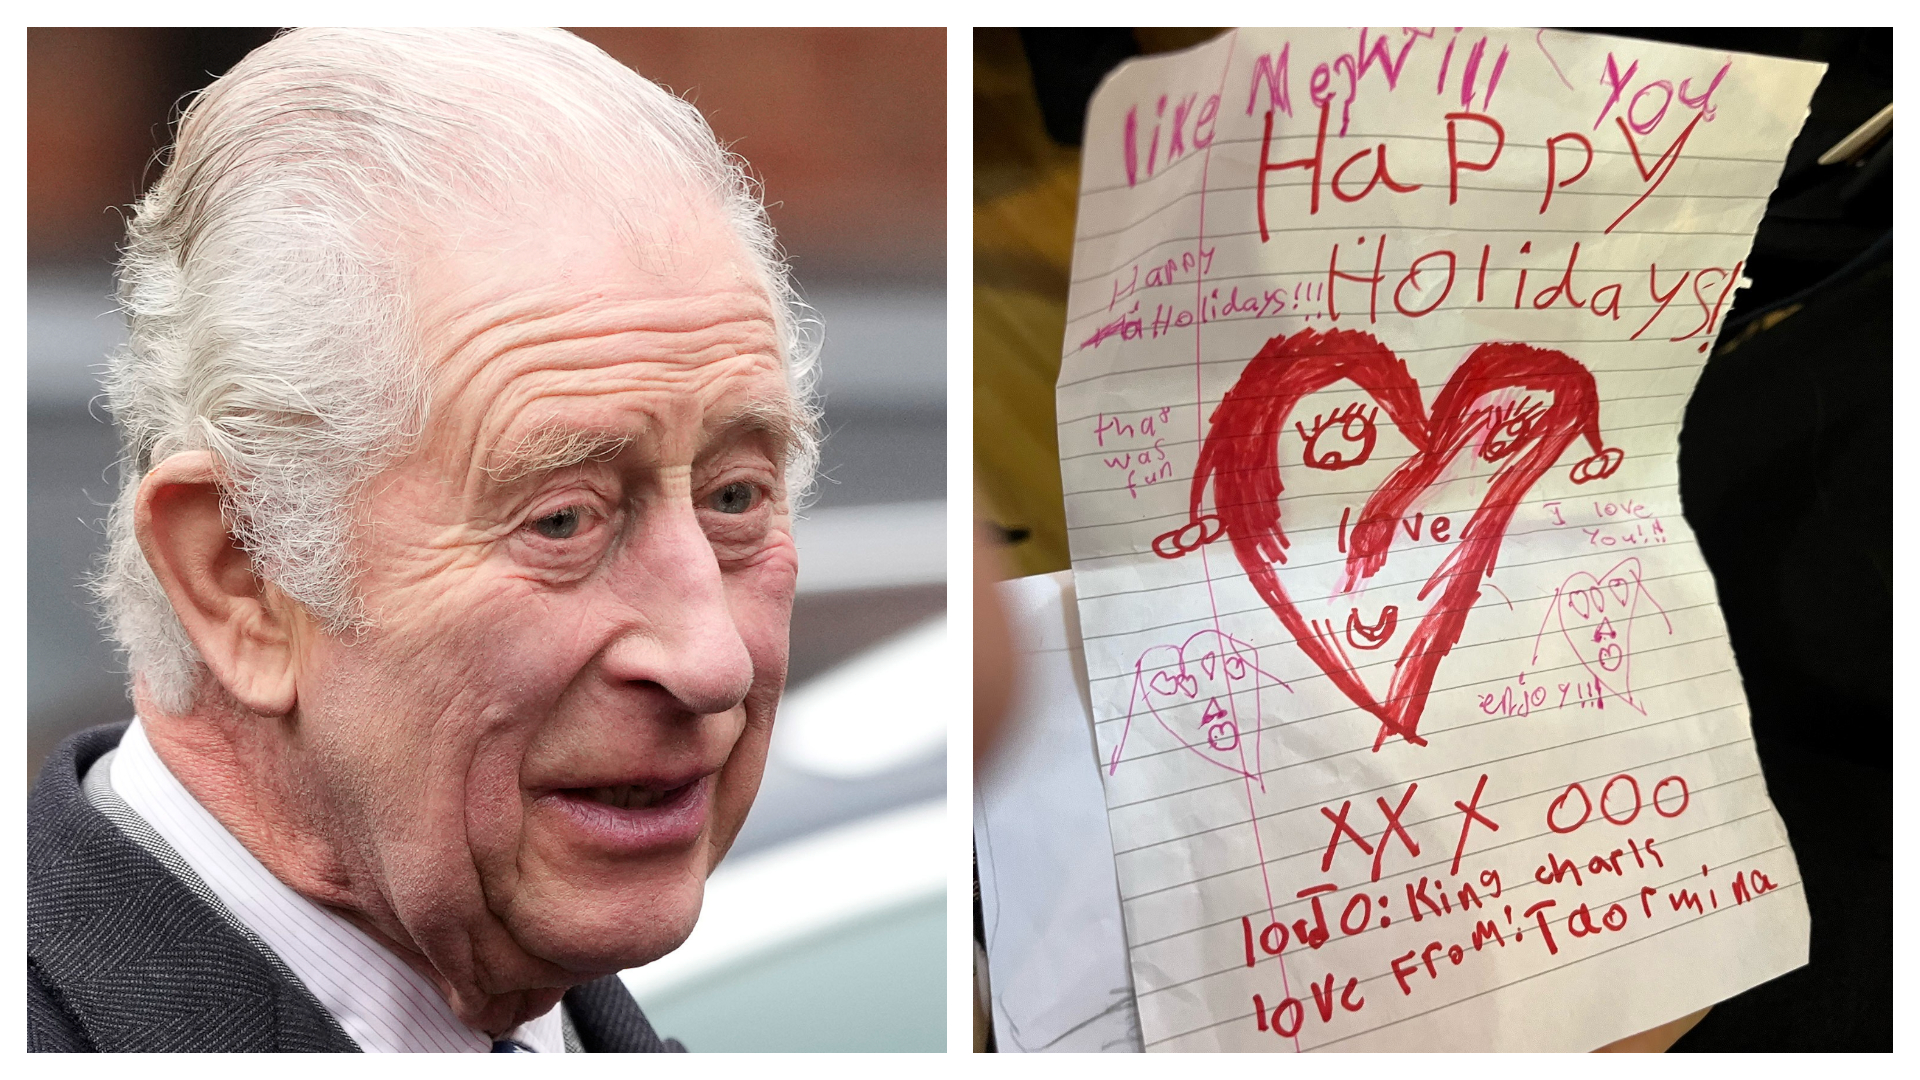 like Me Will You
Happy
Holidays!
Happy
Holidays!!!
that
was
fun
love
I love
You!!!
enjoy!!!
XXX OOO
TO: King charls
love From: Taormina